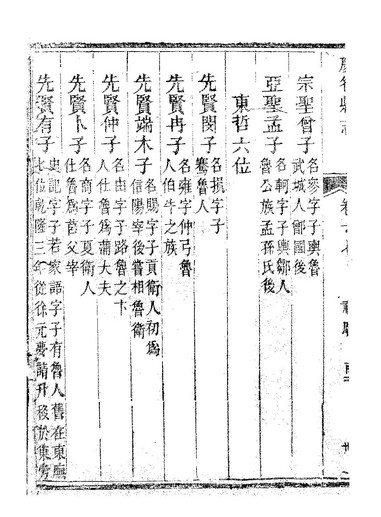 縣志
宗聖曾子
名參字子輿魯
武城人鄫國後
亞聖孟子
名軻字子輿鄒人
魯公族孟孫氏後
東哲六位
先賢閔子
名損字子
騫魯人
先賢冉子
名雍字仲弓魯
人伯牛之族
先賢端木子
名賜字子貢衛人初爲
信陽宰後嘗相魯衛
先賢仲子
名由字子路魯之卞
人仕魯爲蒲大夫
先賢卜子
名商字子夏衛人
仕魯爲莒父宰
先賢有子
史記字子若家語字子有魯人舊在東廡
七位乾隆三年從徐元夢請升移於東旁